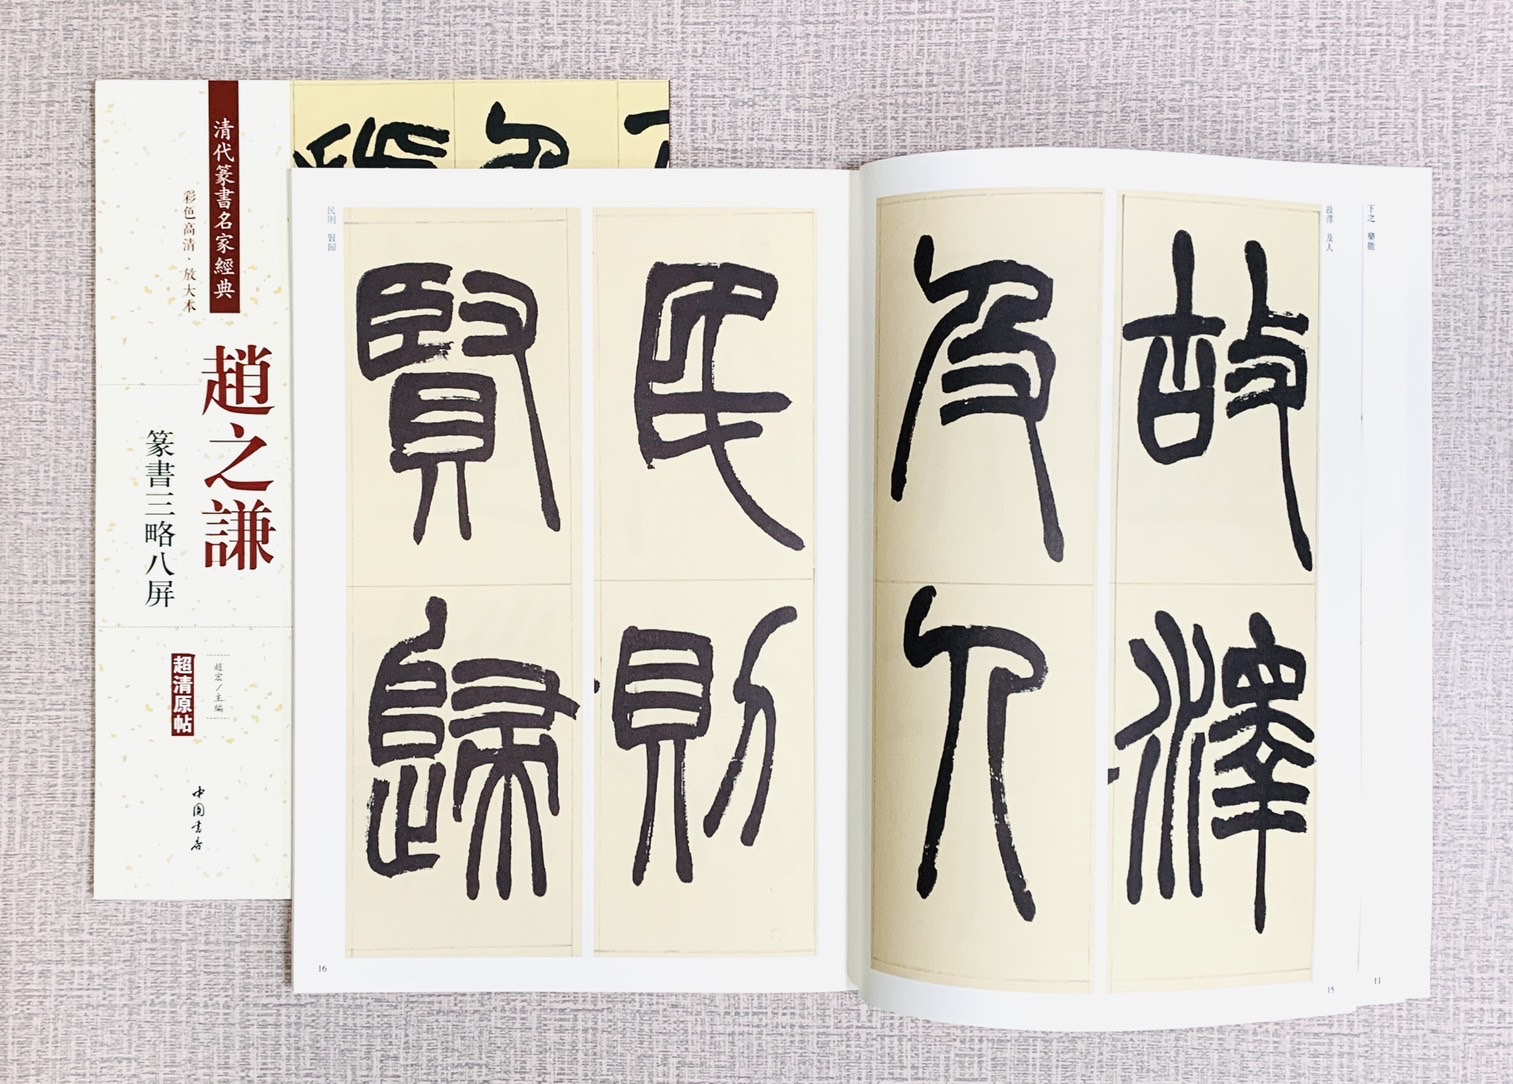 清代篆書名家經典
彩色高清·放大本
趙之謙
篆書三略八屏
趙宏/主編
超清原帖
中国书店
下之 樂能
11
故澤 及人
故澤
及人
15
民則 賢歸
民則
賢歸
16